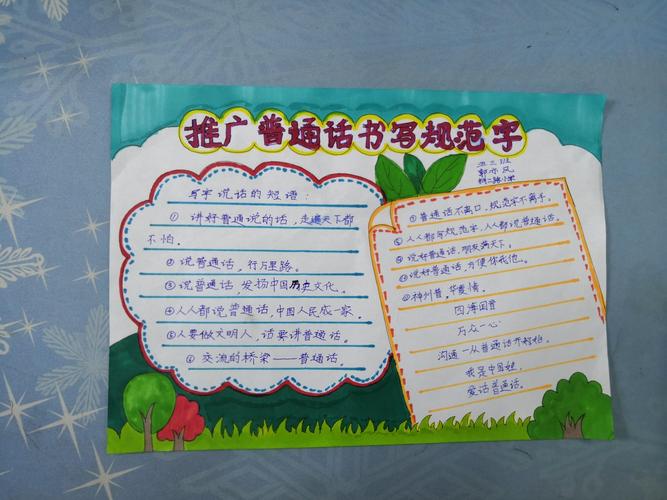 推广普通话书写规范字
五三班
写字说话的短语:
① 讲好普通说的话,走遍天下都
不怕。
② 说普通话,行万里路。
③说普通话 发扬中国历史文化。
④人人都说普通话,中国人民成一家。
⑤人要做文明人,话要讲普通话。
⑥ 交流的桥梁——普通话。
①普通话不离口,规范字不离手。
②人人都写规范字,人人都说普通话。
③说好普通话,朋友满天下。
④说好普通话,方便你我他。
⑤神州音,华夏情。
四海同音
万众一心
沟通一从普通话开始。
我是中国娃
爱话普通话。